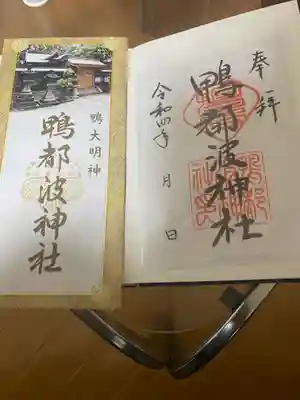 鴨大明神
鴨都波神社
奉拝
鴨都波神社
令和四年 月 日